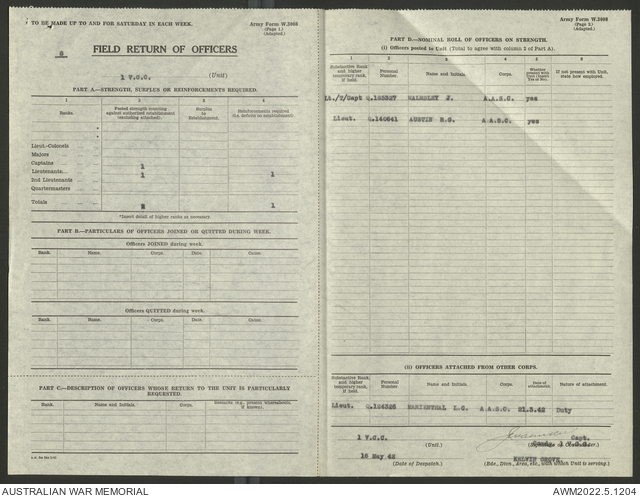 TO BE MADE UP TO AND FOR SATURDAY IN EACH WEEK.
Army Form W.3008
(Page 1)
(Adapted.)
8
FIELD RETURN OF OFFICERS
1 V.C.C. (Unit)
PART A—STRENGTH, SURPLUS OR REINFORCEMENTS REQUIRED.
1 2 3 4
Ranks. Posted strength counting against authorised establishment (excluding attached). Surplus to Establishment. Reinforcements required (i.e. deficits on establishment).
Lieut.-Colonels
Majors
Captains 1
Lieutenants 1 1
2nd Lieutenants
Quartermasters
Totals 2 1
*Insert detail of higher ranks as necessary
PART B.—PARTICULARS OF OFFICERS JOINED OR QUITTED DURING WEEK.
Officers JOINED during week.
Rank. Name. Corps. Date. Cause.
Officers QUITTED during week.
Rank. Name. Corps. Date. Cause.
PART C.—DESCRIPTION OF OFFICERS WHOSE RETURN TO THE UNIT IS PARTICULARLY REQUESTED.
Rank. Name and Initials. Corps. Remarks (e.g., present whereabouts, if known).
Army Form W.3008
(Page 2)
(Adapted.)
PART D.—NOMINAL ROLL OF OFFICERS ON STRENGTH.
(i) Officers posted to Unit (Total to agree with column 2 of Part A).
1 2 3 4 5 6
Substantive Rank and higher temporary rank, if held. Personal Number Name and Initials. Corps. Whether present with Unit (Insert Yes or No). If not present with Unit, state how employed.
Lt./T/Capt WALMSLEY J. A.A.S.C. yes
Lieut. Q.140641 AUSTIN R.G. A.A.S.C. yes
(ii) OFFICERS ATTACHED FROM OTHER CORPS.
Substantive Rank, and higher temporary rank, if held. Personal Number Name and Initials. Corps. Date of attachment. Nature of attachment.
Lieut. Q.124326 MARIENTHAL L.G. A.A.S.C. 21.3.42 Duty
1 V.C.C. (Unit.) Capt.
1 V.C.C.
16 May 42 (Date of Despatch.) KELVIN GROVE.
(Bde., Divn., Area, etc., with which Unit is serving.)
AUSTRALIAN WAR MEMORIAL
AWM2022.5.1204